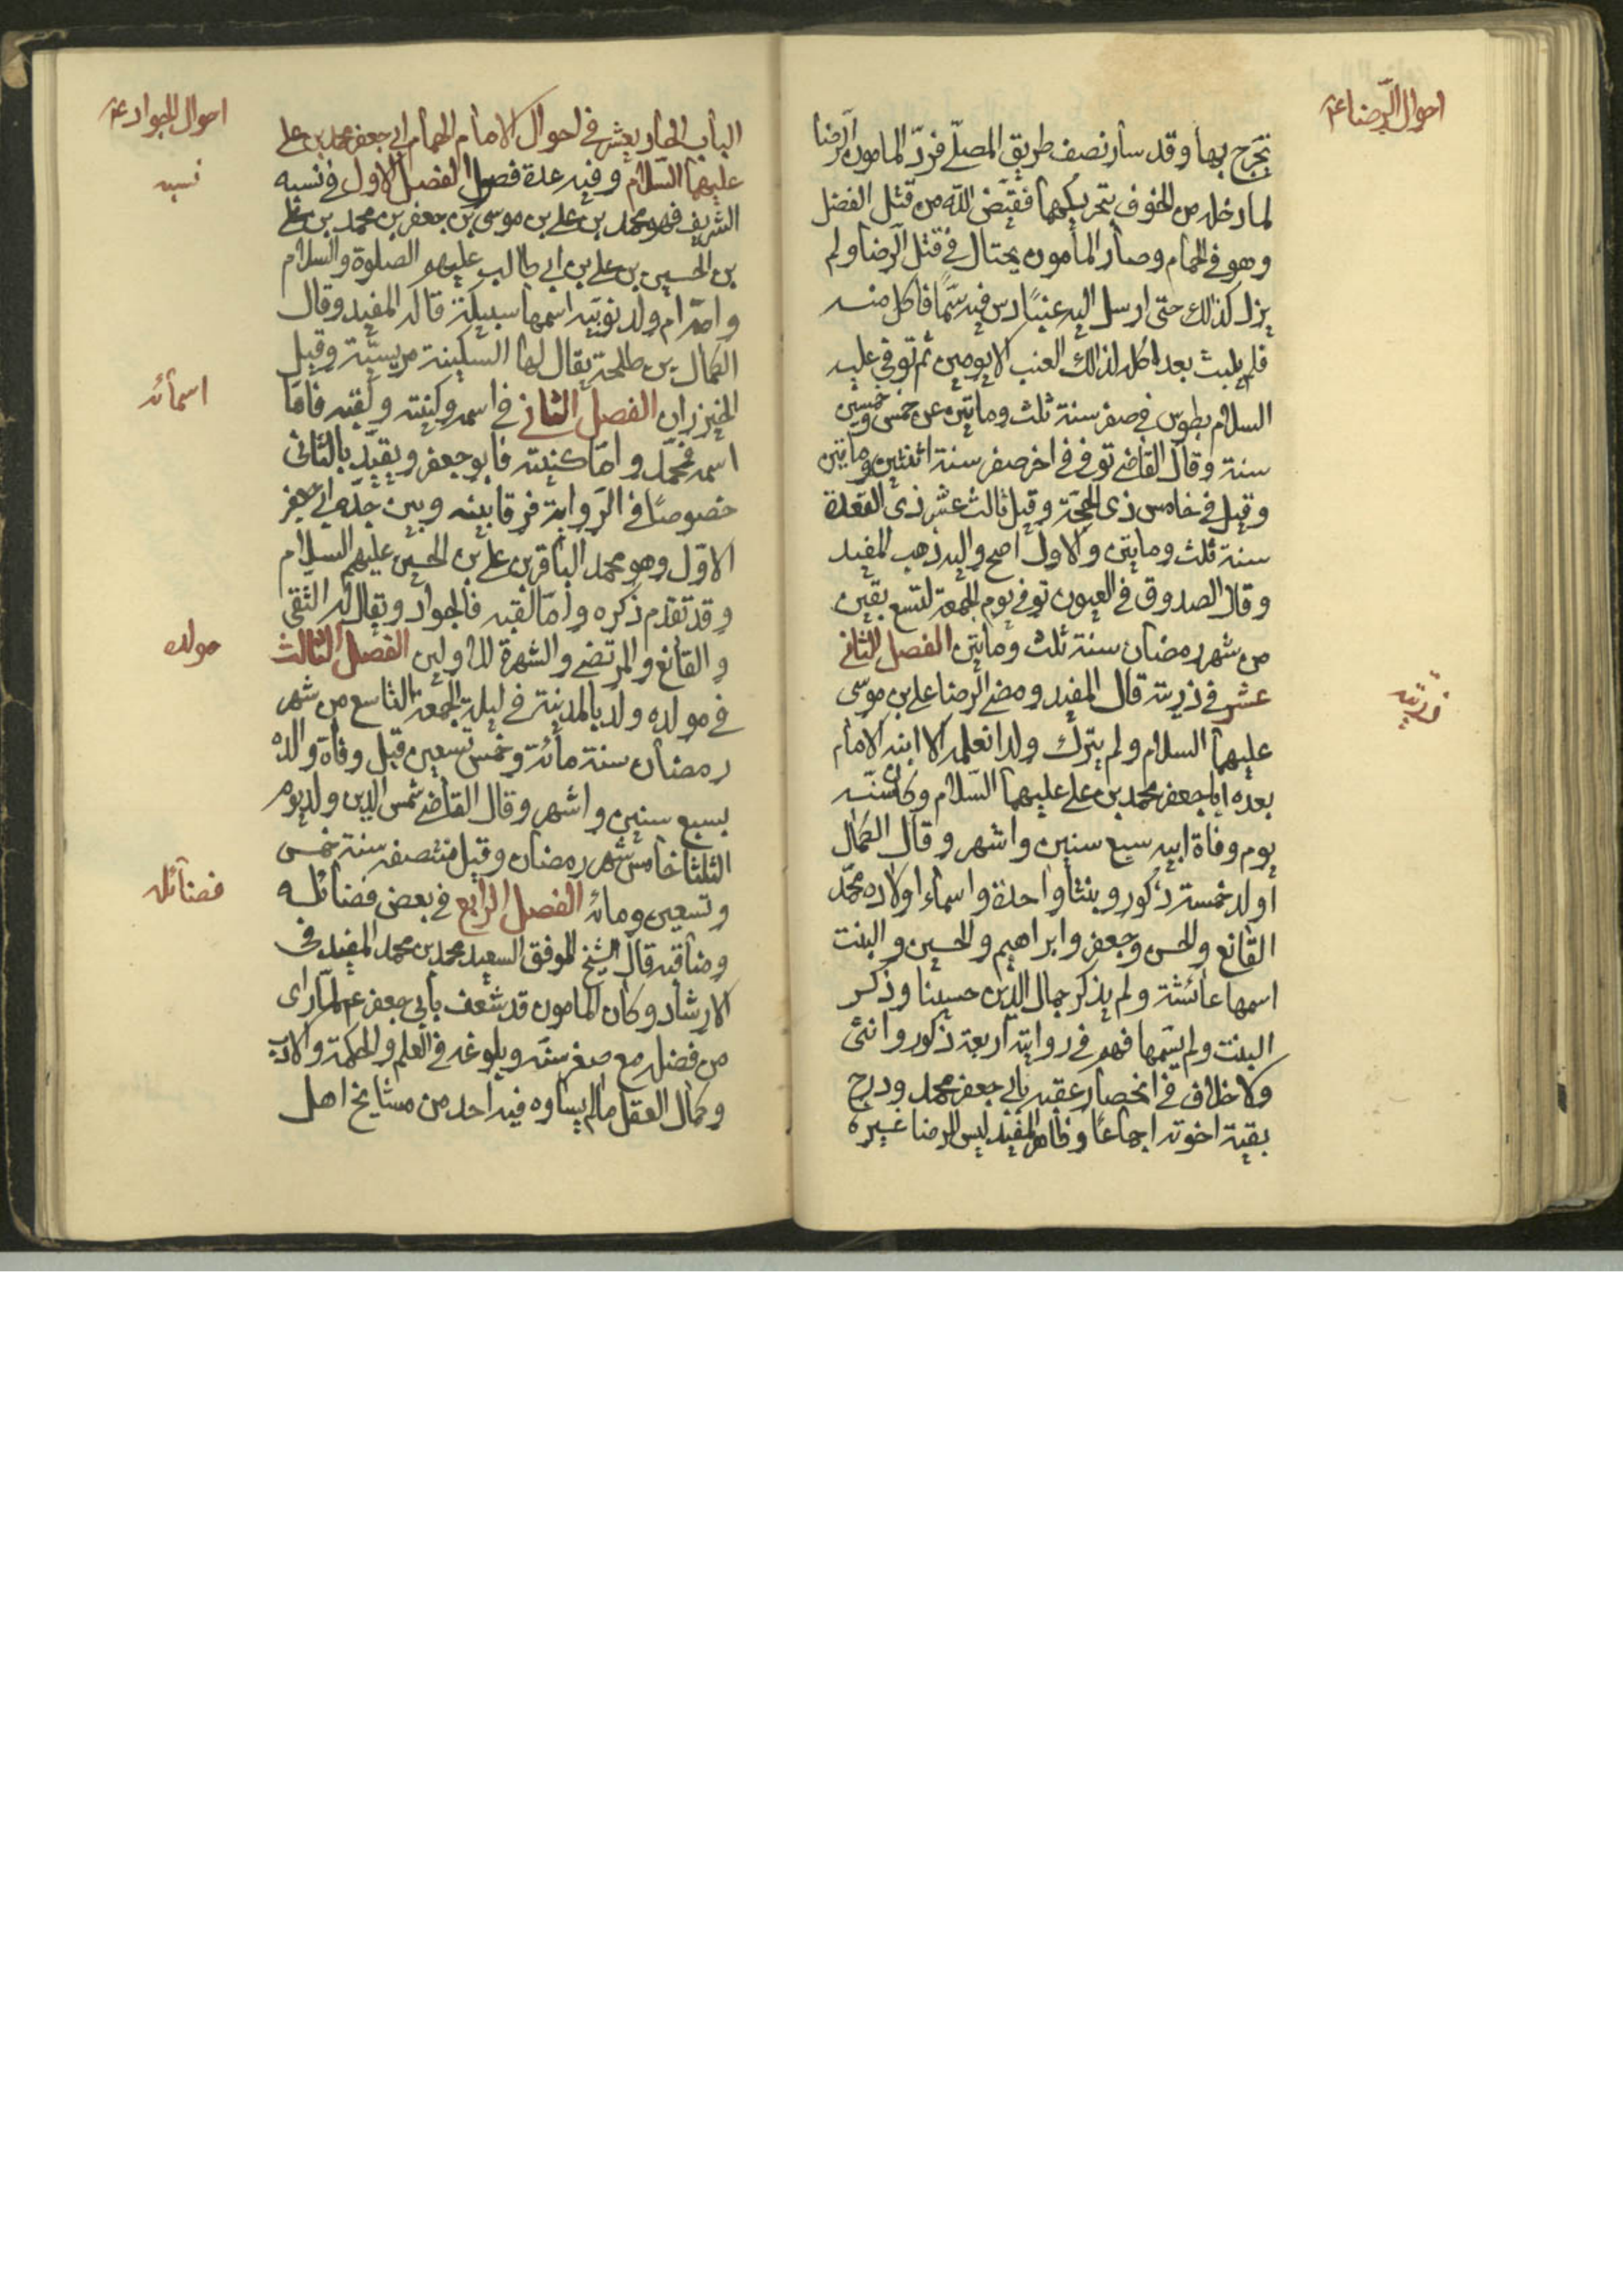 احوال الرضا ع
تخرج بها وقد سار نصف طريق المصلّى فردّ المامون الرضا
لما دخله من الخوف بتحريكهما فقيّض اللّه من قتل الفضل
وهو في الحمام وصار المأمون يحتال في قتل الرضا ولم
يزل كذلك حتى ارسل اليه عنبًا دس فيه سمًّا فاكل منه
فلم يلبث بعد اكله لذلك العنب الا يومين ثم توفي عليه
السلام بطوس في صفر سنة ثلث وماتين عن خمس وخمسين
سنة وقال القاضي توفي في اخر صفر سنة اثنتين وماتين
وقيل في خامس ذي الحجّة وقيل ثالث عشر ذي القعدة
سنة ثلث وماتين والاول اصح واليه ذهب المفيد
وقال الصدوق في العيون توفي يوم الجمعة لتسع بقين
من شهر رمضان سنة ثلث وماتين الفصل الثاني
عشر في ذريته قال المفيد ومضى الرضا علي بن موسى
ذريته
عليهما السلام ولم يترك ولدا نعلمه الا ابنه الامام
بعده ابا جعفر محمد بن علي عليهما السّلام وكان سنّه
يوم وفاة ابيه سبع سنين واشهر وقال الكمال
اولد خمسة ذكور وبنتا واحدة واسماء اولاده محمّد
القانع والحسن وجعفر وابراهيم والحسين والبنت
اسمها عائشة ولم يذكر جمال الدّين حسينا وذكر
البنت ولم يسمّها فهم في روايته اربعة ذكور وانثى
ولا خلاف في انحصار عقبه بابي جعفر محمد ودرج
بقية اخوته اجماعًا وظاهر المفيد ليس للرضا غيره
احوال الجواد ع
الباب الحاديعشر في احوال الامام الهمام ابي جعفر محمد بن علي
عليهما السّلام وفيه عدة فصول الفصل الاول في نسبه
نسبه
الشريف فهو محمد بن علي بن موسى بن جعفر بن محمد بن علي
بن الحسين بن علي بن ابي طالب عليهم الصلوة والسلام
وامّه ام ولد نوبيّة اسمها سبيكة قاله المفيد وقال
الكمال بن طلحة يقال لها السكينة مريسيّة وقيل
الخيزران الفصل الثاني في اسمه وكنيته ولقبه فامّا
اسمائه
اسمه فمحمّد وامّا كنيته فابو جعفر ويقيّد بالثاني
خصوصًا في الرّواية فرقا بينه وبين جدّه ابي جعفر
الاوّل وهو محمد الباقر بن علي بن الحسين عليهم السّلام
وقد تقدم ذكره وامّا لقبه فالجواد ويقال له التقي
والقانع والمرتضى والشهرة للاولين الفصل الثالث
مولده
في مولده ولد بالمدينة في ليلة الجمعة التاسع من شهر
رمضان سنة مائة وخمس تسعين قبل وفاة والده
بسبع سنين واشهر وقال القاضي شمس الدين ولد يوم
الثلثا خامس شهر رمضان وقيل منتصفه سنة خمس
وتسعين ومائة الفصل الرابع في بعض فضائله
فضائله
ومناقبه قال الشيخ الموفق السعيد محمد بن محمد المفيد في
الارشاد وكان المامون قد شعف بابي جعفر ع لمّا راى
من فضله مع صغر سنّه وبلوغه في العلم والحكمة والادب
وكمال العقل ما لم يساوه فيه احد من مشايخ اهل